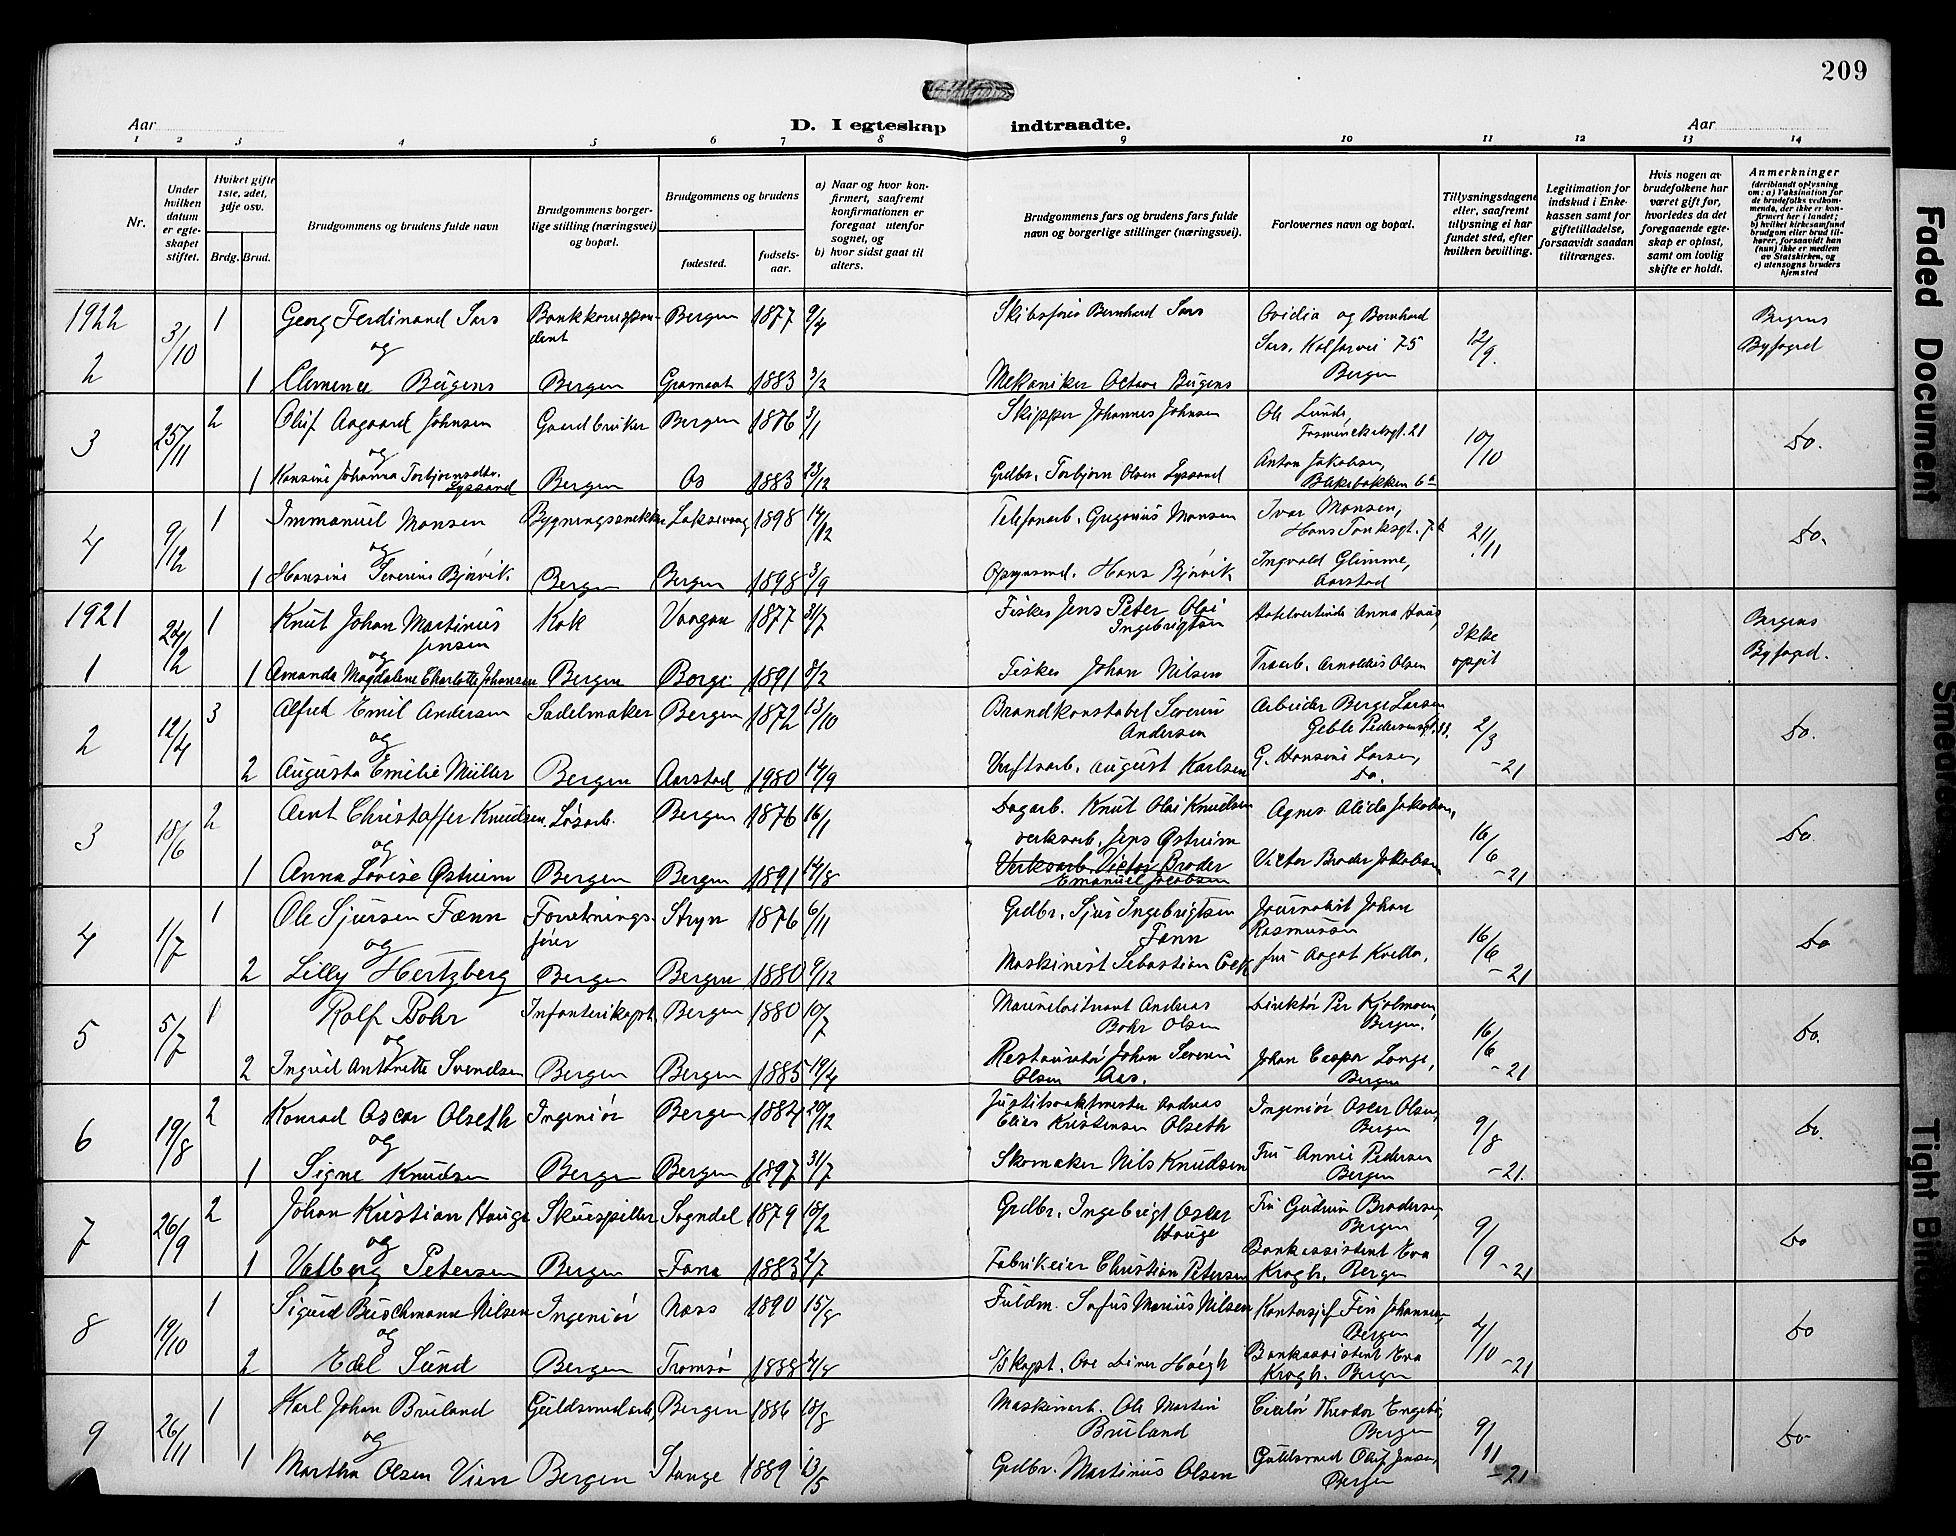 209
Aar
D. I egteskap indtraadte.
Aar
1 2 3 4 5 6 7 8 9 10 11 12 13 14
Nr.
Under hvilken datum er egteskapet stiftet.
Hviket gifte 1ste, 2det, 3dje osv.
Brdg. Brud.
Brudgommens og brudens fulde navn
Brudgommens borgerlige stilling (næringsvei) og bopæl.
Brudgommens og brudens
fødested.
fødselsaar.
a) Naar og hvor konfirmert, saafremt konfirmationen er foregaat utenfor sognet, og
b) hvor sidst gaat til alters.
Brudgommens fars og brudens fars fulde navn og borgerlige stillinger (næringsvei).
Forlovernes navn og bopæl.
Tillysningsdagene eller, saafremt tillysning ei har fundet sted, efter hvilken bevilling.
Legitimation for indskud i Enkekassen samt for giftetilladelse, forsaavidt saadan tiltrænges.
Hvis nogen av brudefolkene har været gift for, hvorledes da det foregaaende egteskap er opløst, samt om lovlig skifte er holdt.
Anmerkninger (deriblandt oplysning om: a) Vaksination for de brudefolks vedkommende, der ikke er konfirmert her i landet; b) hvilket kirkesamfund brudgom eller brud tilhører, forsaavidt han (hun) ikke er medlem av Statskirken, og c) utensogns bruders hjemsted
1922
2 3/10 1 Georg Ferdinand Sars Bankkorrespondent Bergen 1877 9/4 Skibsfører Bernhard Sars Ovidia og Bernhard Sars, Kalfarvei 75 Bergen 12/9. Bergens Byfogd
og
1 Clemence Bugens Bergen 1883 3/2 Mekaniker Octave Bugens
3 25/11 2 Oluf Aagaard Johnsen Gaardbruker Bergen 1876 3/1 Skipper Johannes Johnsen Ole Lunde, 21 10/10 Do.
og
1 Hansine Johanna Torbjørnsdtr. Lyssand Bergen Os 1883 23/12 Grdbr. Torbjørn Olsen Lyssand Anton Jakobsen, Bakebakken 6a
4 9/12 1 Immanuel Monsen Bygningssnekker Laksevaag 1898 14/12 Telefonarb. Gregorius Monsen Ivar Monsen, Hans Tanksgt. 7b 21/11 Do.
og
1 Hansine Severine Bjørvik. Bergen Bergen 1898 3/9 Opsynsmd. Hans Bjørvik Ingvald Glimme, Aarstad
1921
1 24/12 1 Knut Johan Martinius Jensen Kok Vaagan 1877 31/7 Fisker Jens Peter Olai Ingebrigtsen Hotelvertinde Anna Haas, Ikke opgit Bergens Byfogd.
og
1 Amanda Magdalene Charlotte Johansen Bergen Borge 1891 8/2 Fisker Johan Nilsen Trearb. Arnoldus Olsen
2 12/4 3 Alfred Emil Andersen Sadelmaker Bergen 1872 13/10 Brandkonstabel Severin Andersen Arbeider Berge Larsen Geble Pedersensgt. 2/3 -21 Do.
og
2 Augusta Emilie Müller Bergen Aarstad 1980 14/9 Verftsarb. August Karlsen G. Hansine Larsen, Do.
3 18/6 2 Arnt Christoffer Knudsen Løsarb. Bergen 1876 16/1 Dagarb. Knut Olai Knudsen Agnes Alida Jakobsen, 16/6 -21 Do.
og verksarb. Jens Østreim
1 Anna Lovise Østreim Bergen Bergen 1891 14/8 Verksarb. Victor Broder Emanuel Jacobsen Victor Broder Jakobsen
4 1/7 1 Ole Sjursen Fænn Forretningsfører Stryn 1876 6/11 Grdbr. Sjur Ingebrigtsen Fænn Journalist Johan Rasmussen 16/6 -21 Do
og
2 Lilly Hertzberg Bergen Bergen 1880 9/12 Maskinist Sebastian fru Aagot Kvelle,
5 5/7 1 Rolf Bohr Infanterikapt. Bergen 1880 10/7 Marineløitnant Andreas Bohr Olsen Direktør Per Kjølmoen, Bergen. 16/6 -21 Do.
og
2 Ingrid Antonette Svendsen Bergen Bergen 1885 19/4 Restauratør Johan Severin Olsen Aas. Johan Caspar Lange, Bergen
6 19/8 2 Konrad Oscar Olseth Ingeniør Bergen 1882 20/12 Justitsvaktmester Andreas Elias Kristensen Olseth Ingeniør Oscar Olsen, Bergen 9/8 -21. Do.
og
1 Signe Knudsen Bergen Bergen 1897 31/7 Skomaker Nils Knudsen Fru Annie Pedersen Bergen
7 26/9 2 Johan Kristian Hauge Skuespiller Sogndal 1879 18/2 Grdbr. Ingebrigt Oscar Hauge Fru Gudrun Brodersen, Bergen 9/9 -21 Do
og
1 Valborg Petersen Bergen Fana 1883 2/7 Fabrikeier Christian Petersen Bankassistent Eva Krogh. Bergen
8 19/10 1 Sigurd Buschmann Nilsen Ingeniør Næss 1890 15/8 Fuldm. Sofus Marius Nilsen Kontorsjef Finn Johannesen, Bergen 4/10 -21 Do
og
2 Edel Sund Bergen Tromsø 1888 4/8 Skapt. Ove Diner Høegh Bankassistent Eva Krogh. Bergen
9 26/11 1 Karl Johan Bruland Guldsmedarb. Bergen 1886 18/8 Maskinarb. Ole Martin Bruland Theodor Bergen 9/11 -21 Do
og
1 Martha Olsen Vien Bergen Stange 1889 13/5 Grdbr. Martinus Olsen Guldsmed Oluf Jensen, Bergen
Faded Document
Smeared
Tight Bind